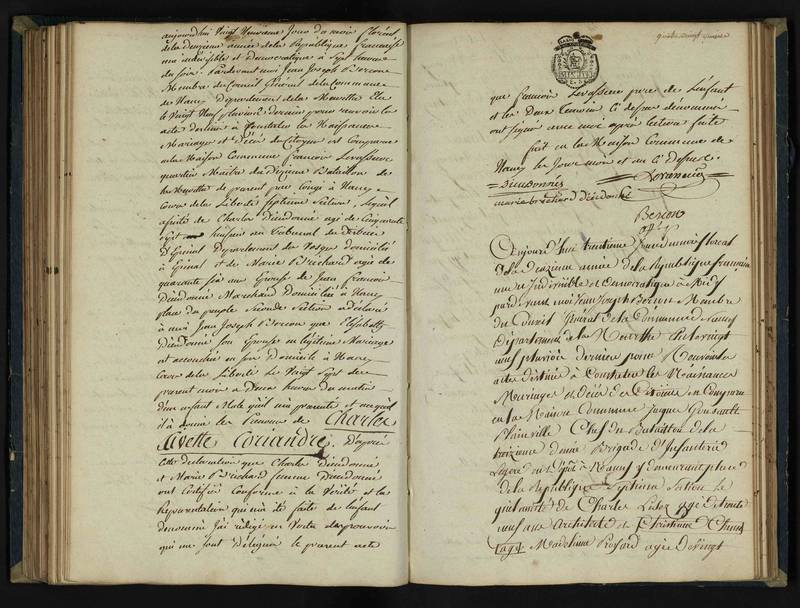 aujourd'hui vingt Neuvieme Jour du mois floréal,
de la deuxieme année de la République francaise
une indivisible et démocratique à Sept heures
du soir. Pardevant moi Jean Joseph Bercon
Membre du Conseil Général de la Commune
de Nancy Département de la Meurthe Elu
le Vingt Neuf pluviose dernier pour recevoir les
acte destinés à Constater les Naissances
Mariages et Décès des Citoyens est Comparu
en la Maison Commune francois Levasseur
quartier Maitre du dixieme Bataillon de
la Meurthe de present par Congé à Nancy
Cour de la Liberté septieme Section, lequel
assisté de Charles dieudonné agé de Cinquante
Sept huissier au Tribunal du District
d'Epinal Département des Vosges domicilié
à Epinal et de Marie Brichard agée de
quarante six ans Epouse de Jean francois
Dieudonné Marchand Domiciliée à Nancy
place du peuple seconde Section a déclaré
à moi Jean Joseph Bercon que Elisabeth
Dieudonné son Epouse en légitime Mariage
est accouchée en son domicile à Nancy
Cour de la Liberté le Vingt Sept de
present mois à Deux heures du matin
d'un enfant Male qu'il m'a presenté et auquel
il a donné les Prenoms de Charles
Lavette Coriandre. D'après
cette declaration que Charles Dieudonné
et Marie Brichard femme Dieudonné
ont Certifié Conforme à la Vérité et la
Representation qui m'a été faite de l'enfant
denommé j'ai rédigé en Vertu des pouvoirs
qui me sont Délégués le present acte
que francois Levasseur pere de l'enfant
et les Deux Temoins Ci dessus dénommés
ont signé avec moi après lecture faite
fait en la Maison Commune de
Nancy les Jour mois et an Ci Dessus.
Dieudonné
marie brichard dieudonné
Bercon
off. p.
Aujourd'hui trentieme Jour du mois floréal
de la deuxieme année de la République francaise
une Indivisible et Democratique à
pardevant moi Jean Joseph Bercon Membre
du Conseil Général de la Commune de Nancy
Département de la Meurthe Elu le vingt
neuf pluviose dernier pour Recevoir les
actes destinés à Constater les Naissances
Mariages et Décès des Citoyens est Comparu
en la Maison Commune Jacques
Plainville Chef du Bataillon de la
treizieme demie Brigade d'Infanterie
Légere en Dépôt à Nancy y demeurant place
de la République Septieme Section lequel
assisté de Charles agé de trente
neuf ans Architecte et Christine
Madelaine agée de Vingt